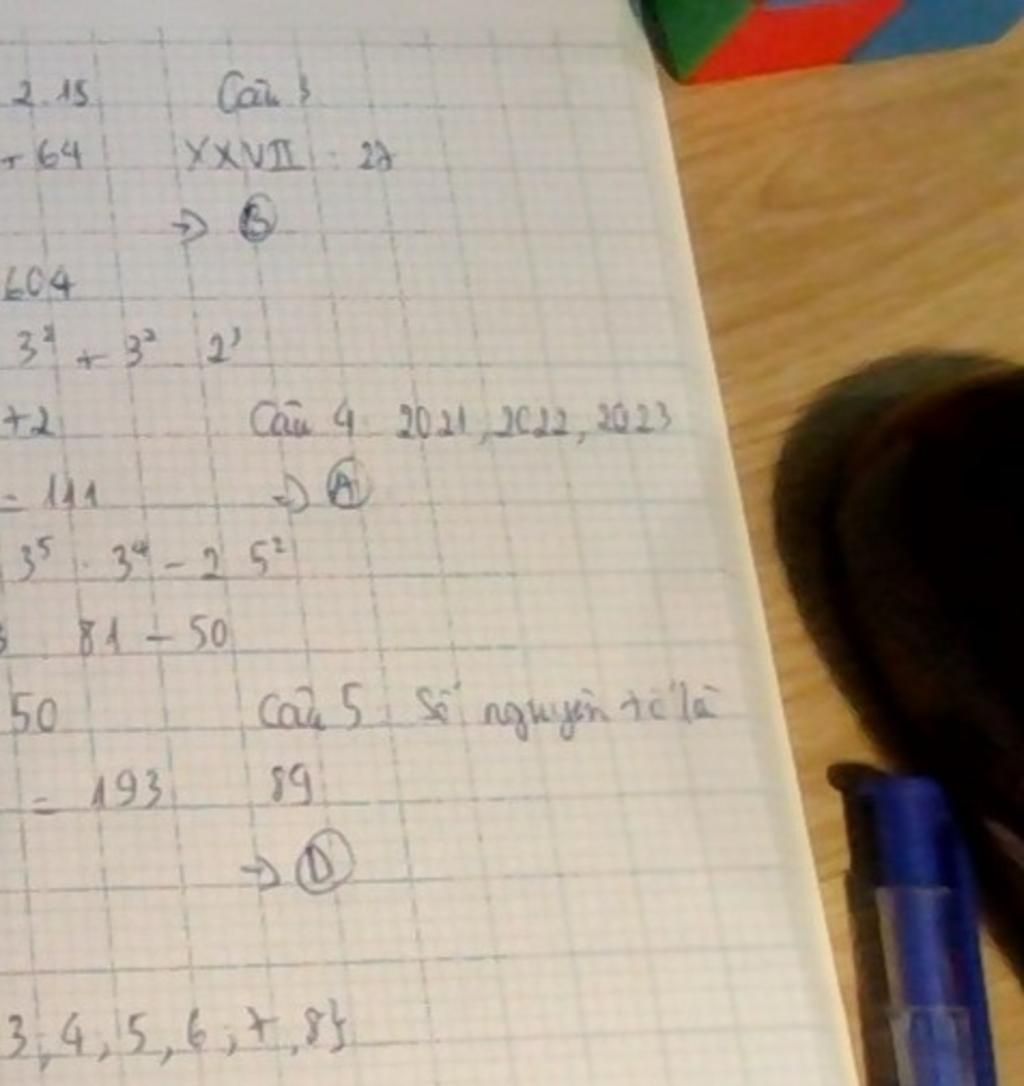 2.15 Câu 3
+ 64 XXVII : 27
=> B
604
3² + 3² 2³
+2 Câu 4 2021, 2022, 2023
= 111 => A
3⁵ : 3⁴ - 2 5²
81 - 50
50 Câu 5 : Số nguyên tố là
= 193 89
=> D
3, 4, 5, 6, 7, 8}